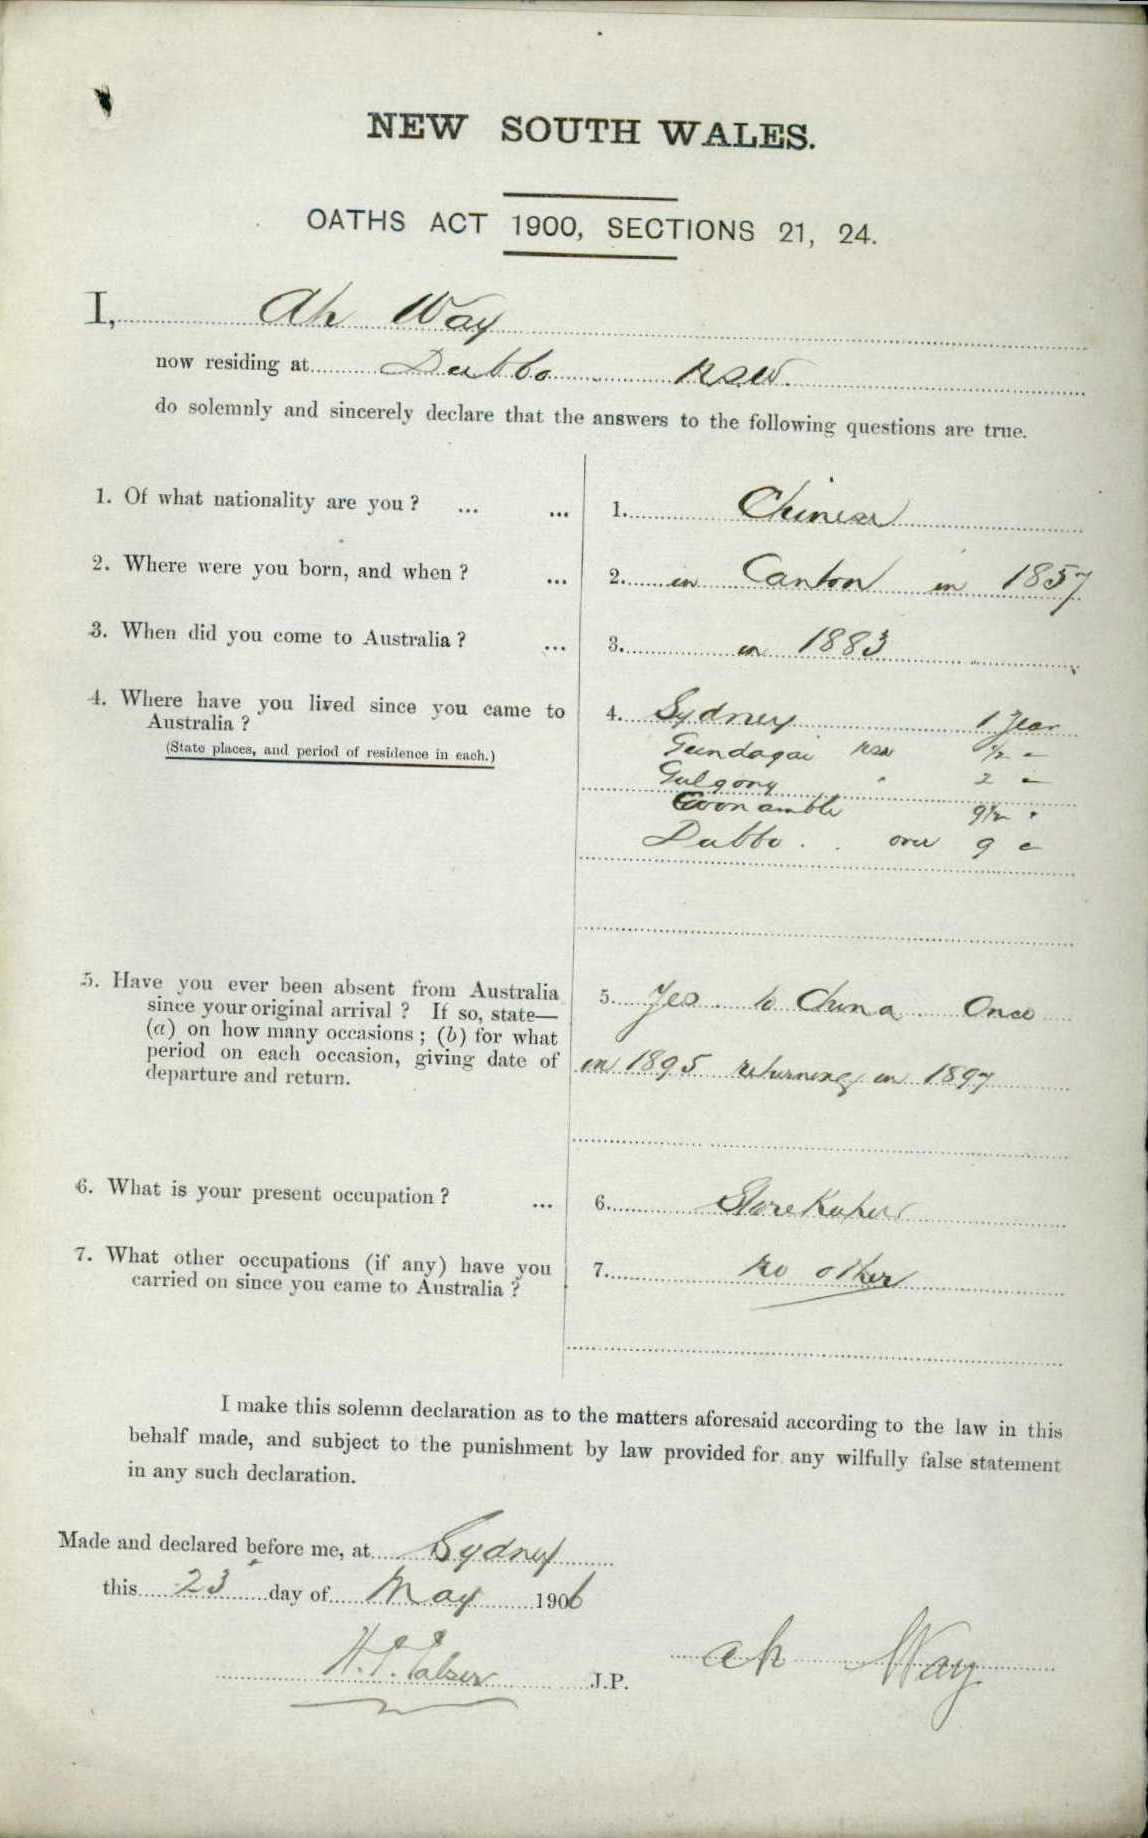 NEW SOUTH WALES.
OATHS ACT 1900, SECTIONS 21, 24.
I, Ah Way
now residing at Dubbo NSW.
do solemnly and sincerely declare that the answers to the following questions are true.
1. Of what nationality are you? ... ... 1. Chinese
2. Where were you born, and when? ... 2. in Canton in 1857
3. When did you come to Australia? ... 3. in 1883
4. Where have you lived since you came to Australia? 4. Sydney 1 Year
(State places, and period of residence in each.)
Gundagai NSW 1/2 "
Gulgong " 2 "
Coonamble 9 1/2 "
Dubbo . . over 9 "
5. Have you ever been absent from Australia
since your original arrival? If so, state—
(a) on how many occasions; (b) for what
period on each occasion, giving date of
departure and return.
5. Yes. to China Once
in 1895 returning in 1897
6. What is your present occupation? ... 6. Storekeeper
7. What other occupations (if any) have you
carried on since you came to Australia?
7. no other
I make this solemn declaration as to the matters aforesaid according to the law in this
behalf made, and subject to the punishment by law provided for any wilfully false statement
in any such declaration.
Made and declared before me, at Sydney
this 23 day of May 1906
H. J.P.
Ah Way